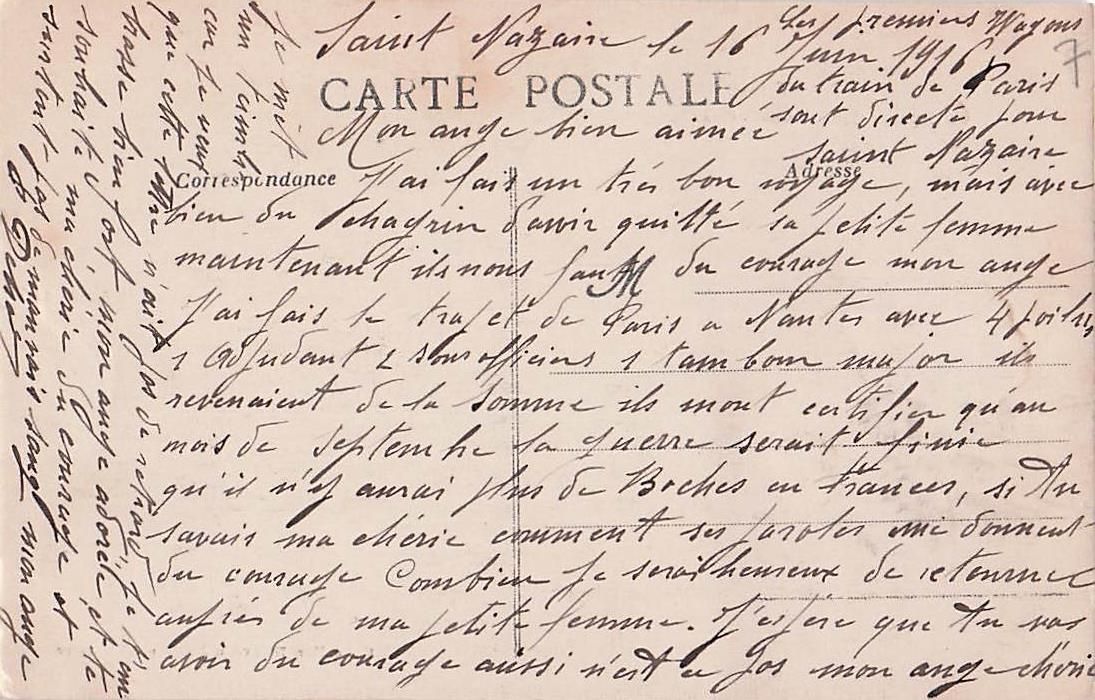 Saint Nazaire le 16 Juin 1916
Les premiers Wagons
du train de Paris
sont directe pour
Saint Nazaire
7
CARTE POSTALE
Mon ange bien aimée
Correspondance
Adresse
J'ai fais un trés bon voyage, mais avec
bien du chagrin d'avoir quitté sa petite femme
maintenant ils nous faut du courage mon ange
J'ai fais le trajet de Paris a Nantes avec 4 poilus
1 Adjudant 2 sousofficiers 1 tambour major ils
revenaient de la Somme ils mont certifier qu'au
mois de Septembre la guerre serait finie
qu'il n'y aurai plus de Boches en Frances, si tu
savais ma chérie comment ses paroles me donnent
du courage Combien je serai heureux de retourner
auprés de ma petite femme. J'espére que tu vas
avoir du courage aussi n'est ce pas mon ange chérie
Je met
un timbre
car je veux
que cette lettre n'ait pas de retard, Je t'em
brasse bien fort mon ange adorée, et te
souhaite ma chérie du courage et
surtout pas de mauvais sang mon ange